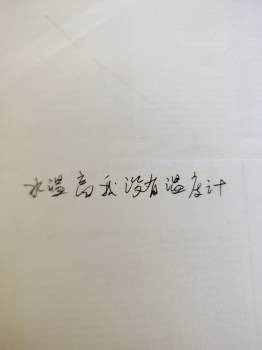 水温高我没有温度计